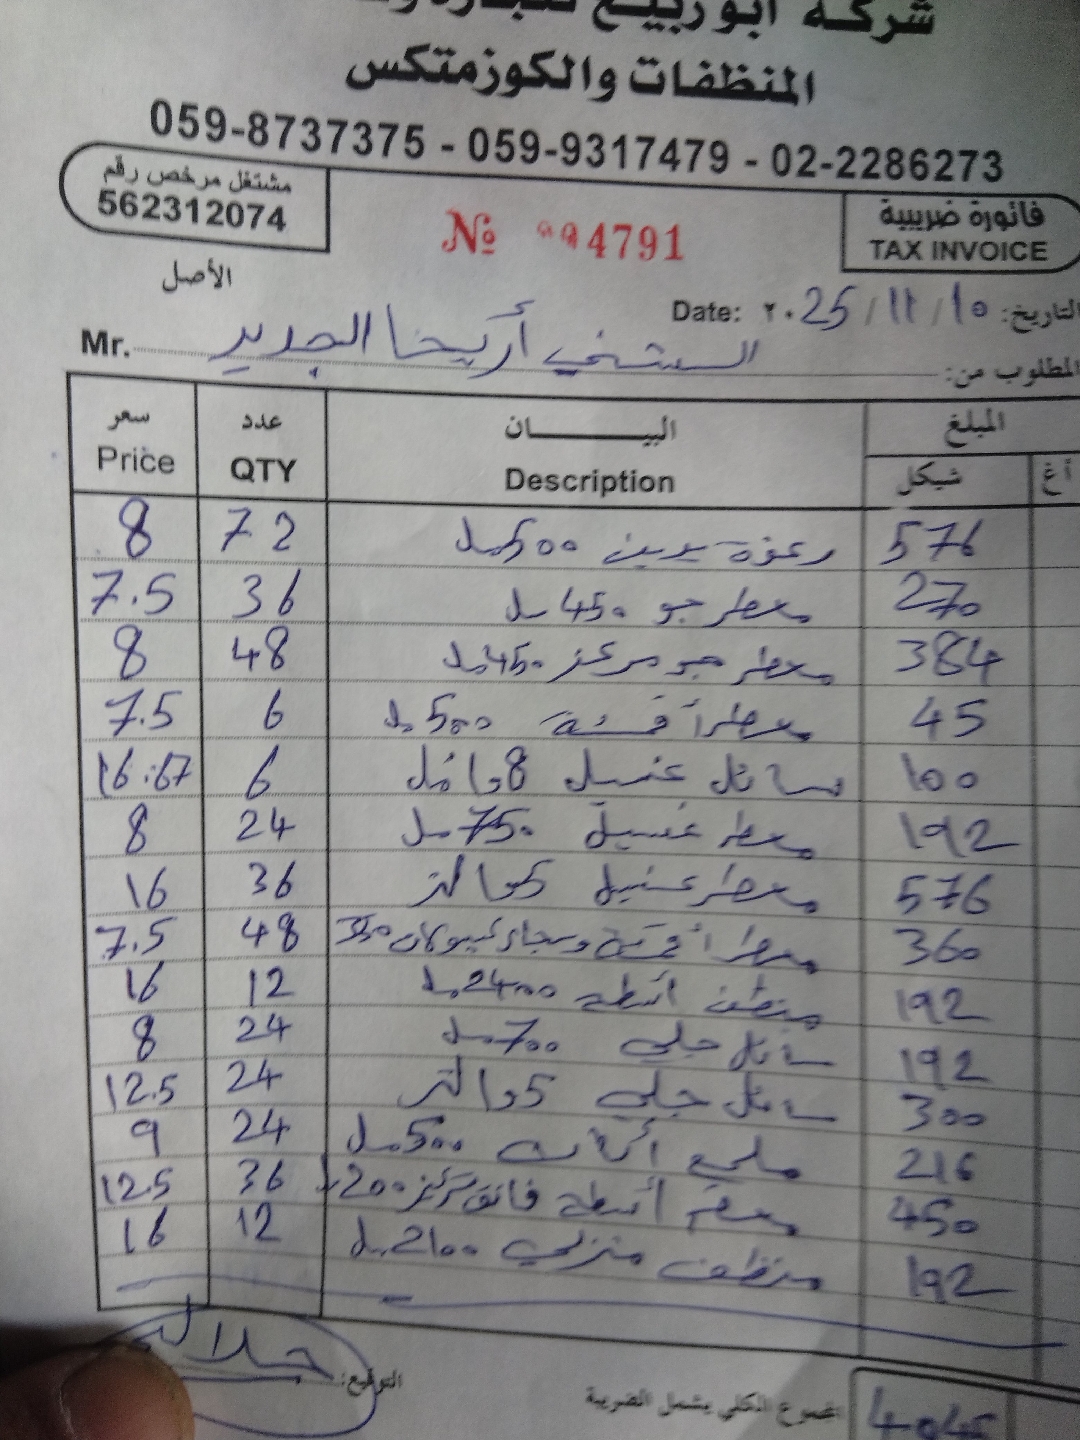 شركة ابو ربيع
المنظفات والكوزمتكس
059-8737375 - 059-9317479 - 02-2286273
مشتغل مرخص رقم
562312074
№ 4791
فاتورة ضريبية
TAX INVOICE
الأصل
التاريخ: Date: ٢٠25/11/10
Mr. السشني أريحا الجديد المطلوب من:
سعر Price عدد QTY البيـــــــان Description المبلغ شيكل أغ
8 72 رغوة يدين 500 مل 576
7.5 36 معطر جو 450 مل 270
8 48 معطر جو مركز 450 مل 384
7.5 6 معطر أقمشة 500 مل 45
16.67 6 سائل غسيل 8 100
8 24 معطر غسيل 750 مل 192
16 36 معطر غسيل 5 لتر 576
7.5 48 معطر أقمشة وسجاد 350 360
16 12 منظف اسطح 2400 مل 192
8 24 سائل جلي 700 مل 192
12.5 24 سائل جلي 5 لتر 300
9 24 ملمع أثاث 500 مل 216
12.5 36 معقم أسطح فائق تركيز 450
16 12 منظف منزلي 2100 مل 192
التوقيع:
المجموع الكلي يشمل الضريبة 4045